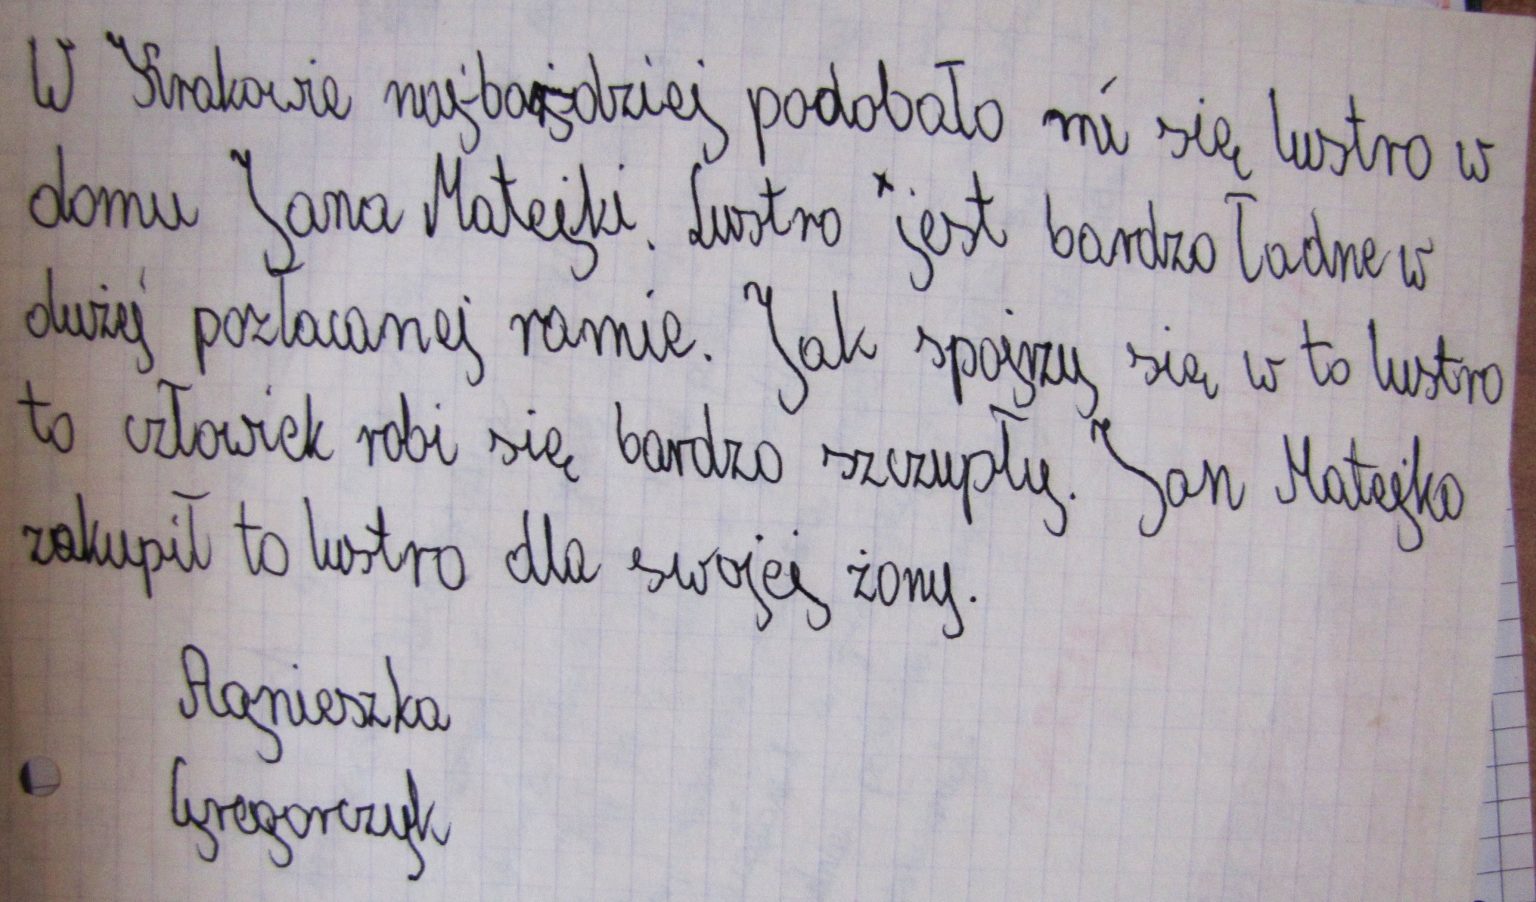 W Krakowie najbardziej podobało mi się lustro w
domu Jana Matejki. Lustro jest bardzo ładne w
dużej pozłacanej ramie. Jak spojrzy się w to lustro
to człowiek robi się bardzo szczupły. Jan Matejko
zakupił to lustro dla swojej żony.
Agnieszka
Gregorczyk